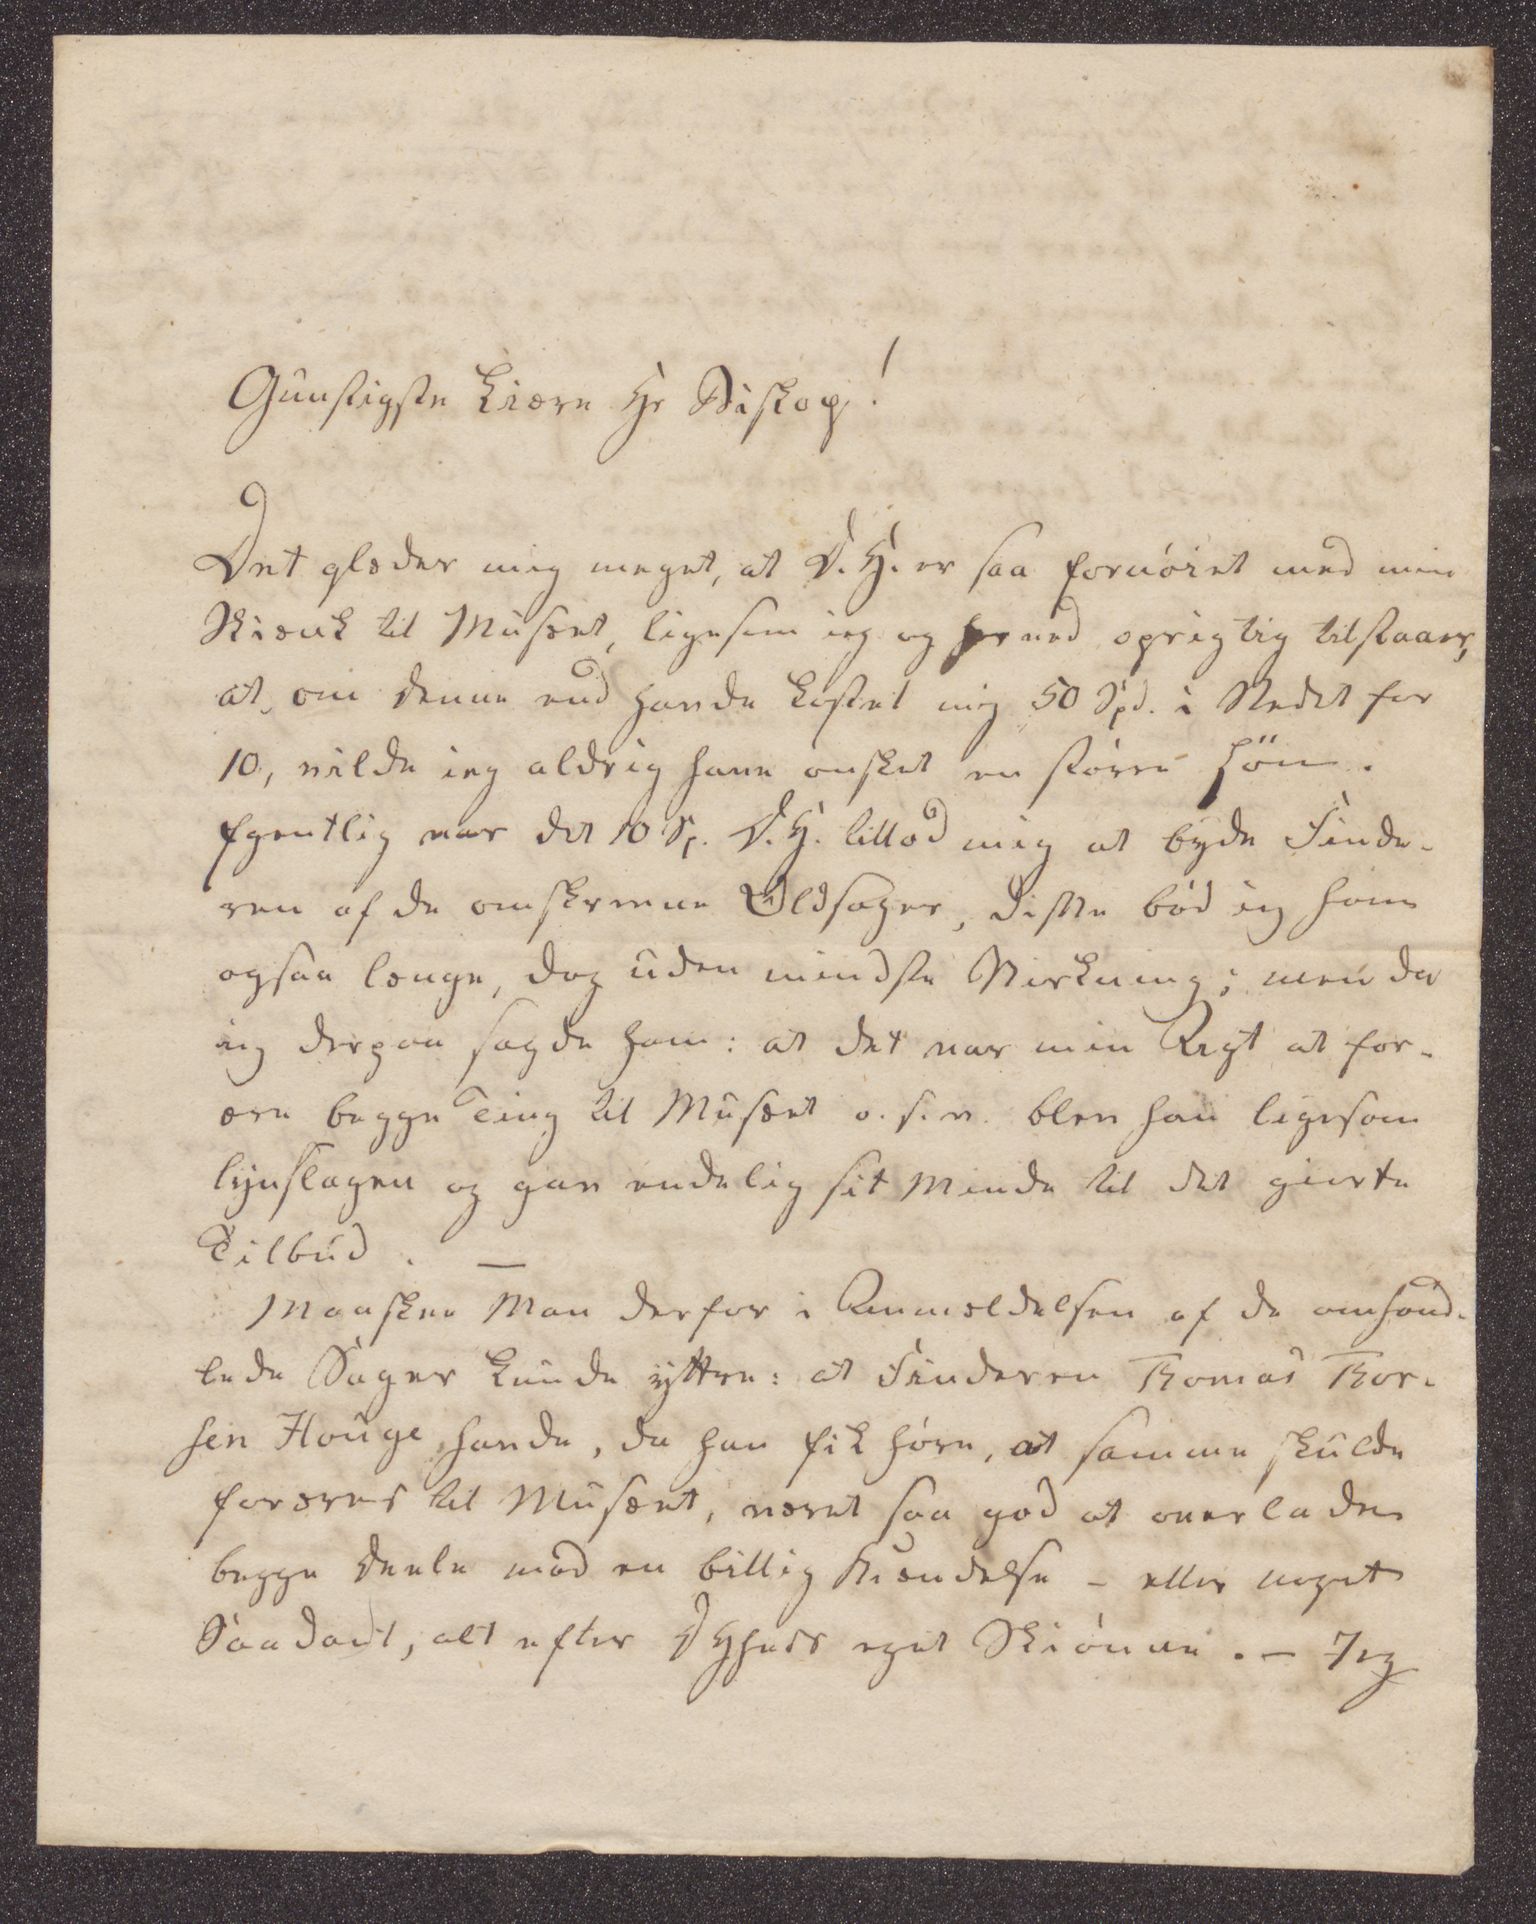 Gunstigste kiære Hr Biskop!
Det glæder mig meget, at D. H. er saa fornöiet med min
Skiænk til Musæet, ligesom ieg og herved oprigtig tilstaaer,
at, om denne end havde kostet mig 50 Spd. i Stedet for
10, vilde ieg aldrig have ønsket en större Lön.
Egentlig var det 10 Sp. D. H. tillod mig at byde Finde-
ren af de omskrevne Oldsager, disse böd ieg ham
ogsaa længe, dog uden mindste Virkning; men da
ieg derpaa sagde ham: at det var min Agt at for-
ære begge Ting til Musæet o. s. v. blev han ligesom
lynslagen og gav endelig sit Minde til det giorte
Tilbud. —
Maaskee Man derfor i Anmældelsen af de omhand-
lede Sager kunde yttre: at Finderen Thomas Thor-
sen Houge havde, da han fik høre, at samme skulde
foræres til Musæet, været saa god at overlade
begge Deele mod en billig Kiendelse - eller noget
Saadant, alt efter DHheds eget Skiönne. - Jeg